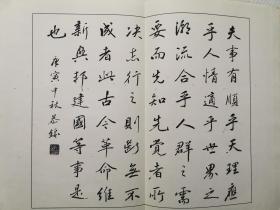 夫事有順乎天理應
乎人情適乎世界之
潮流合乎人群之需
要而先知先覺者所
決志行之則斷無不
成者此古今革命維
新興邦建國等事是
也
庚寅中秋恭錄